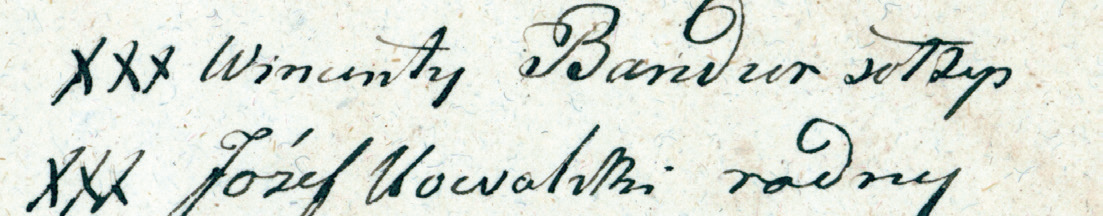 XXX Wincenty Bandur sołtys
XXX Józef Kowalski radny